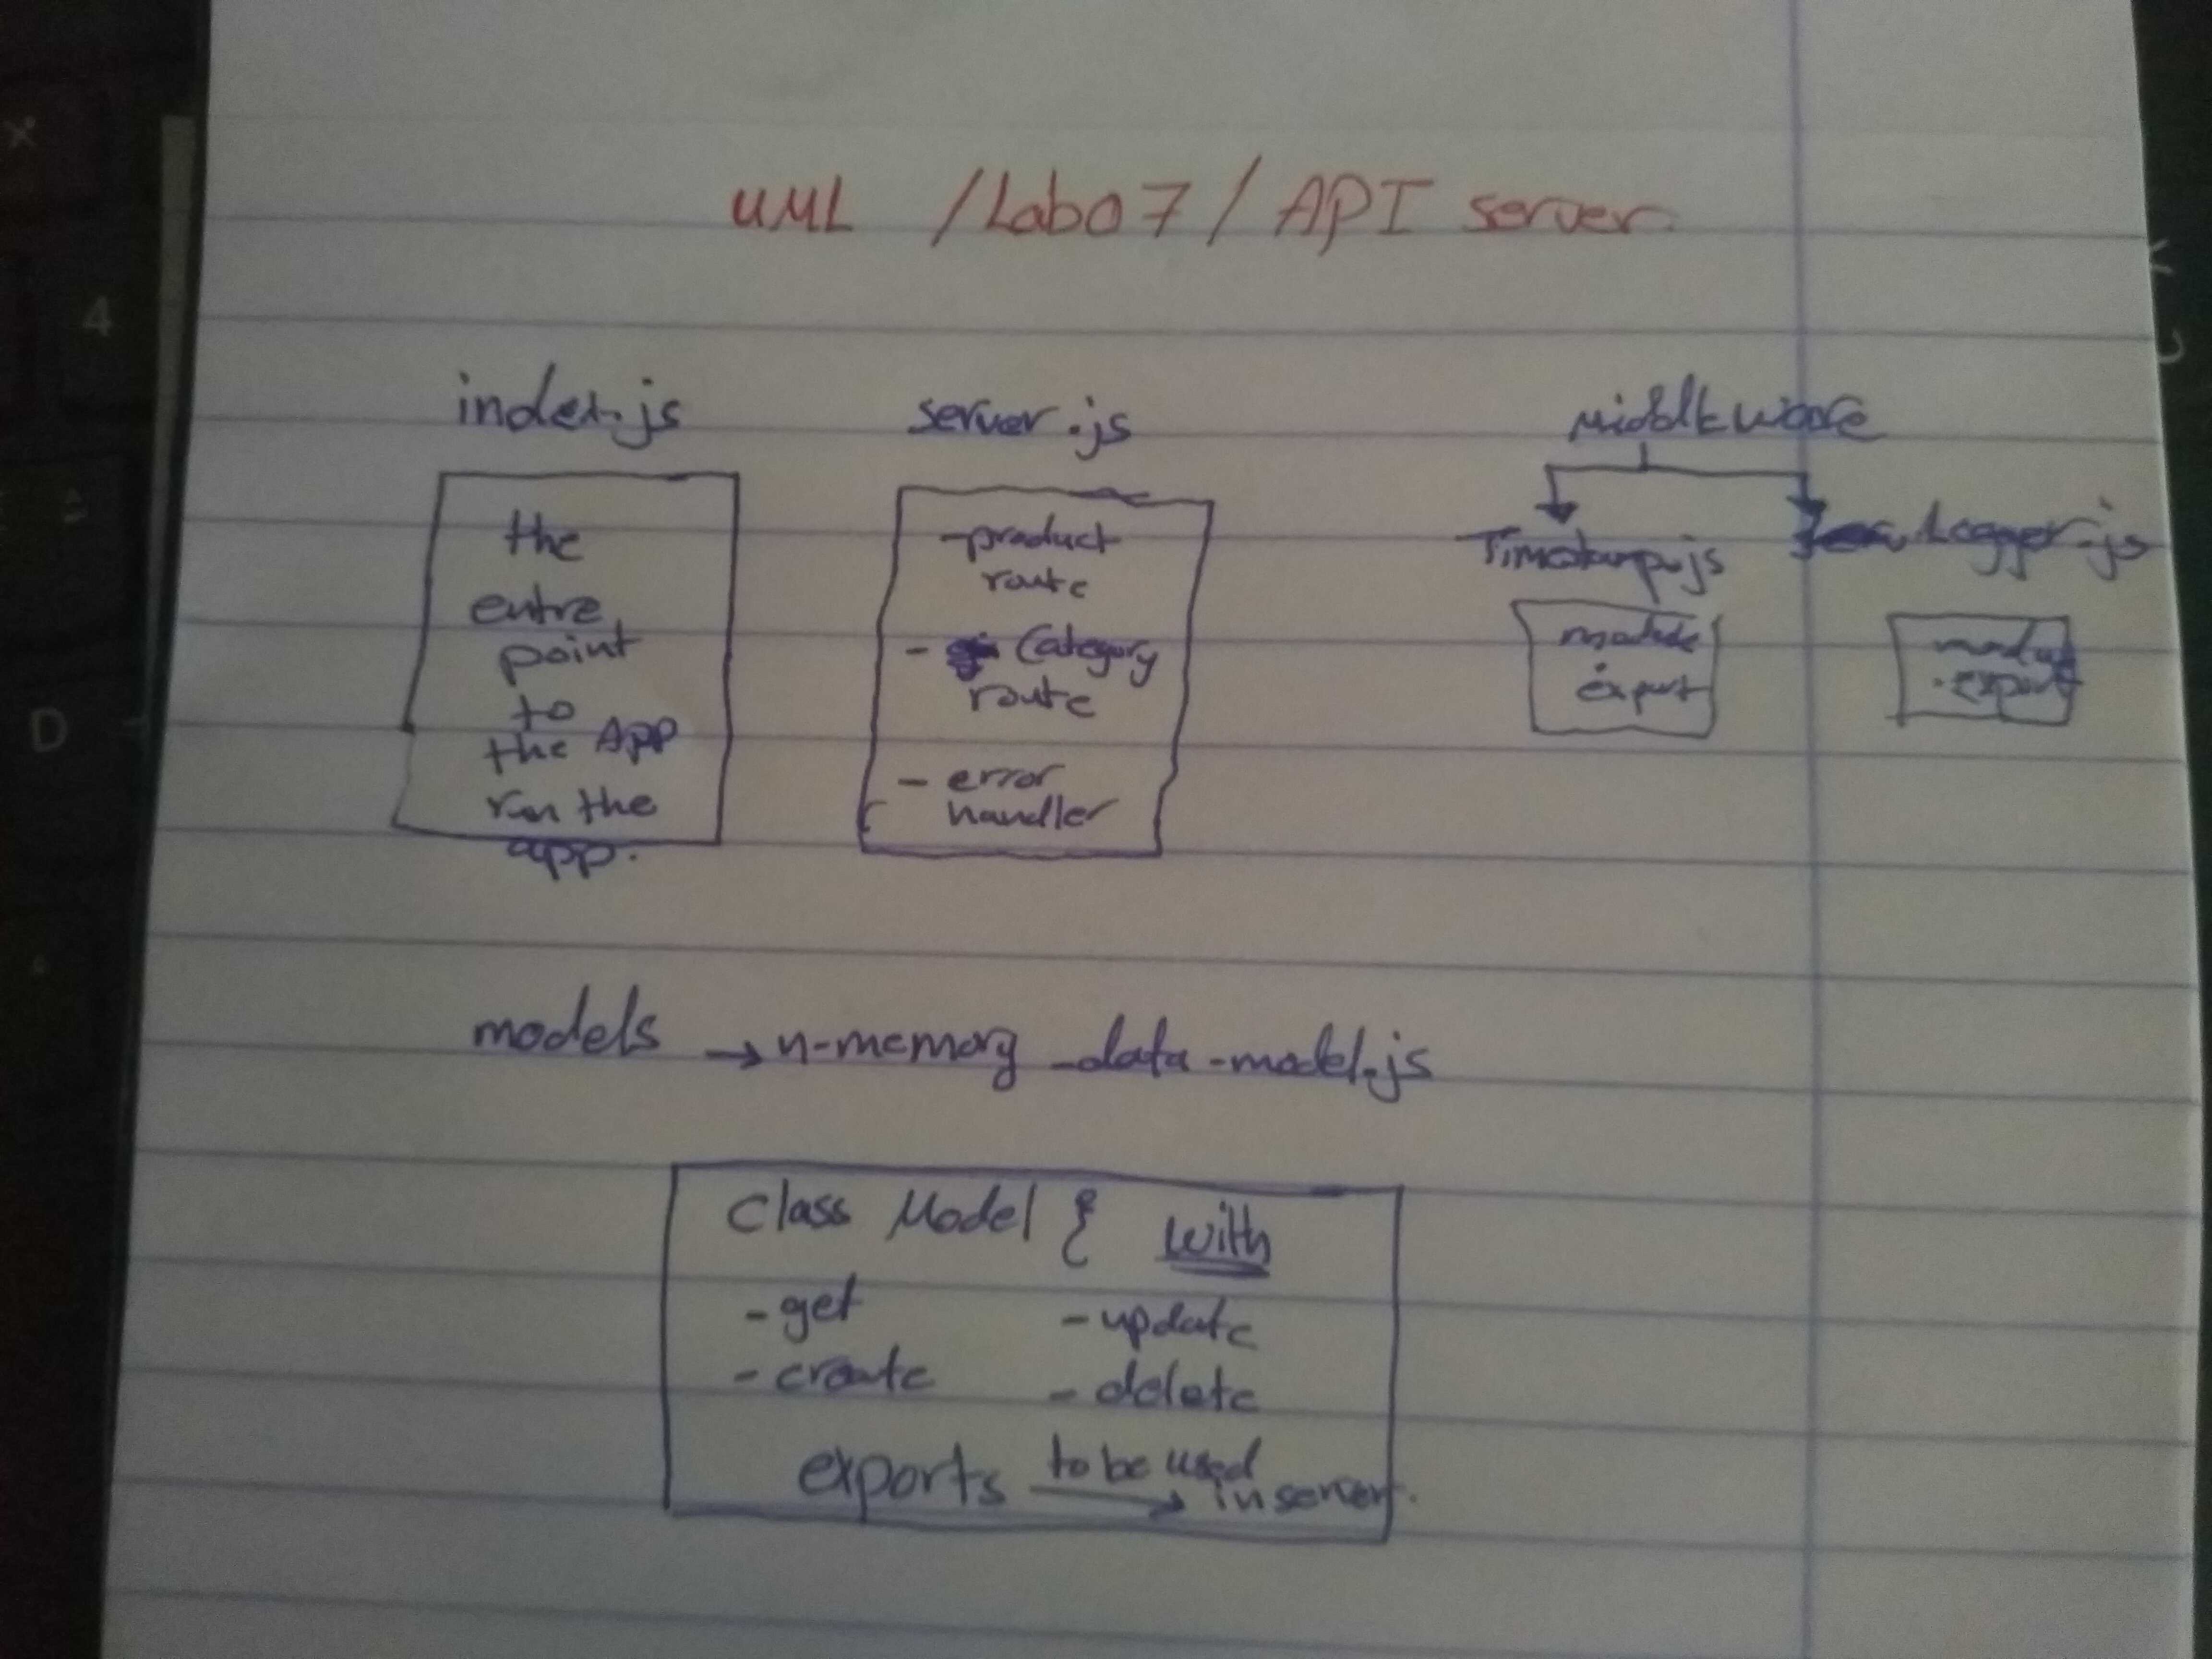 UML /Lab07/ API server
index.js
the
entre
point
to
the App
run the
app.
server.js
-product
route
- Category
route
- error
handler
Middleware
Timestamp.js
Logger.js
module
.export
module
.export
models → n-memory -data-model.js
class Model { with
-get -update
-create -delete
exports to be used
→ in server.
X
4
D